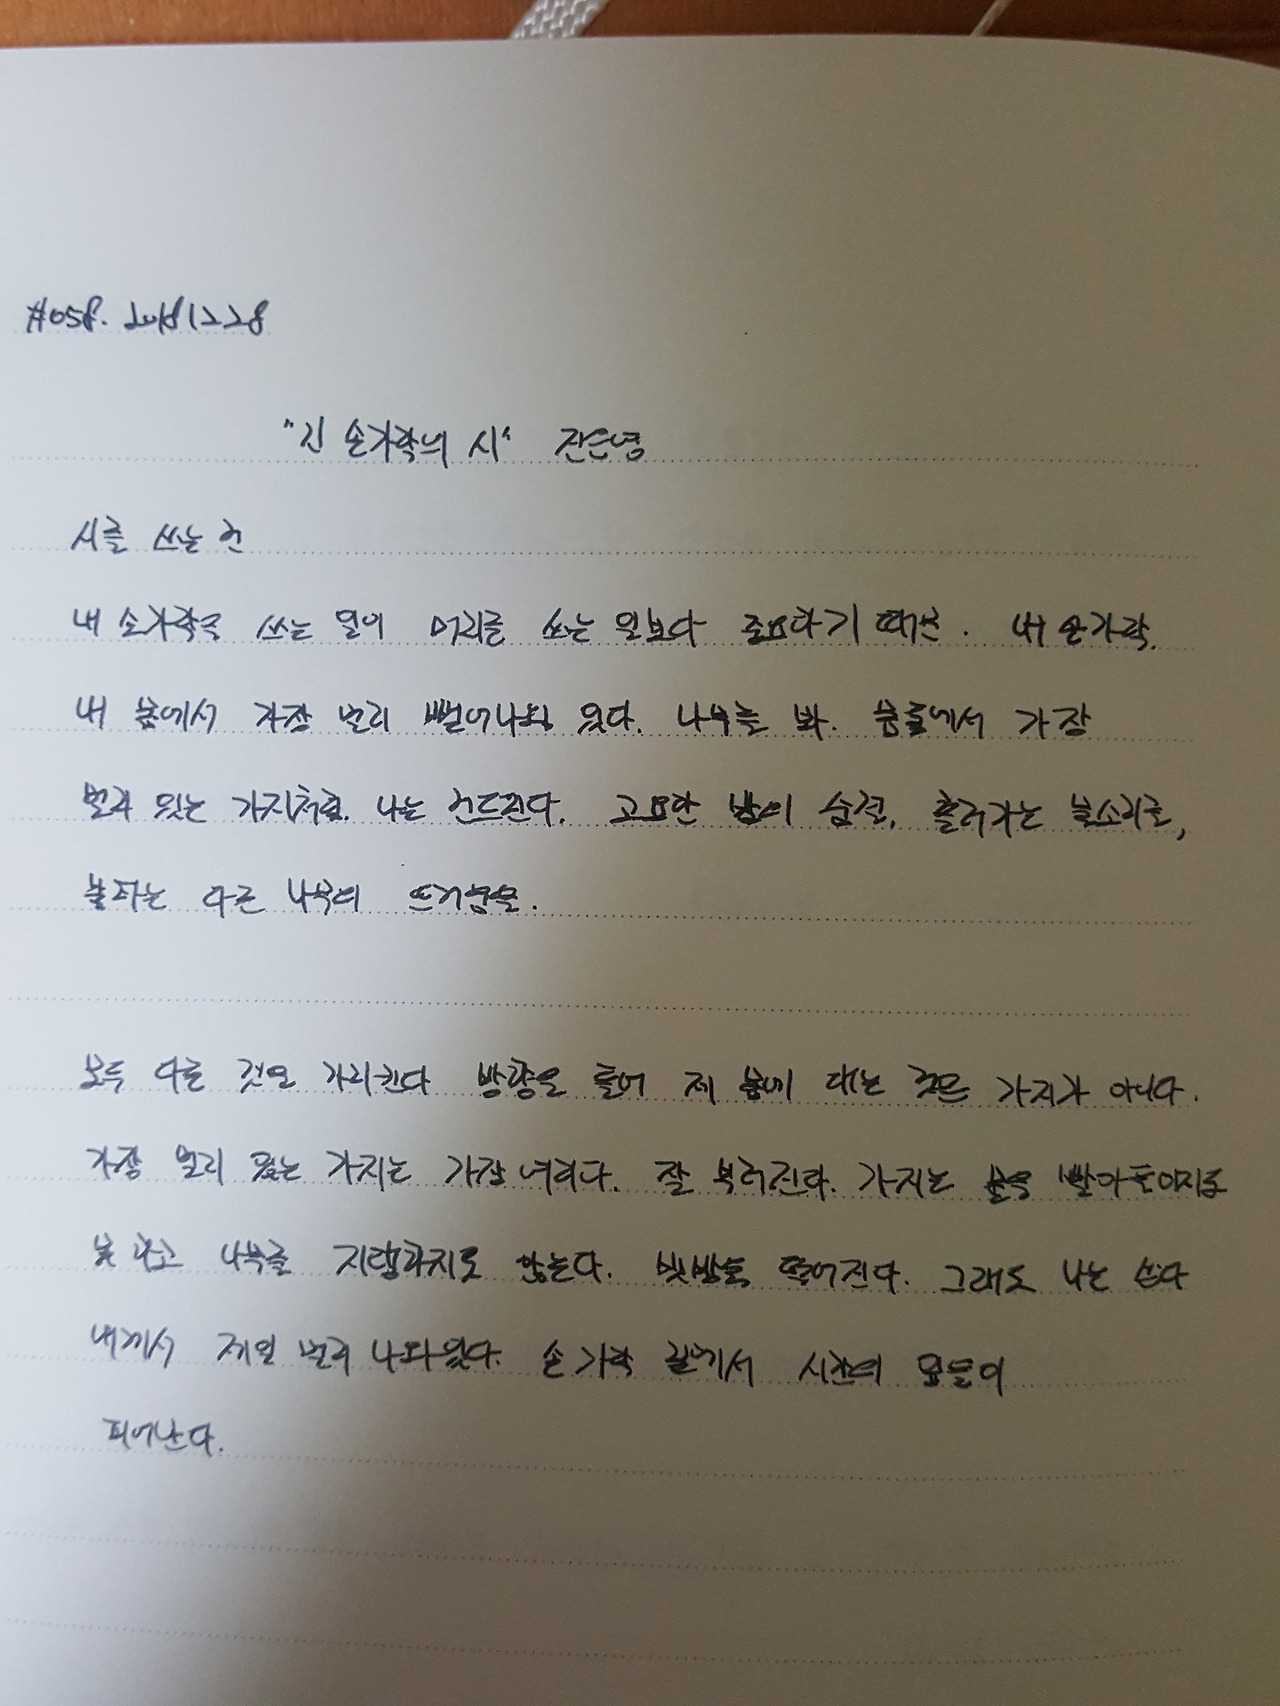 #058. 20181228
"긴 손가락의 시" 진은영
시를 쓰는 건
내 손가락을 쓰는 일이 머리를 쓰는 일보다 중요하기 때문. 내 손가락,
내 몸에서 가장 멀리 뻗어나와 있다. 나무를 봐. 몸통에서 가장
멀리 있는 가지처럼. 나는 건드린다. 고요한 밤의 숨결, 흘러가는 물소리를,
불타는 다른 나무의 뜨거움을.
모두 다른 것을 가리킨다 방향을 틀어 제 몸에 대는 것은 가지가 아니다.
가장 멀리 있는 가지는 가장 여리다. 잘 부러진다. 가지는 물을 빨아들이지도
못하고 나무를 지탱하지도 않는다. 빗방울 떨어진다. 그래도 나는 쓴다
내게서 제일 멀리 나와있다. 손가락 끝에서 시간의 잎들이
피어난다.